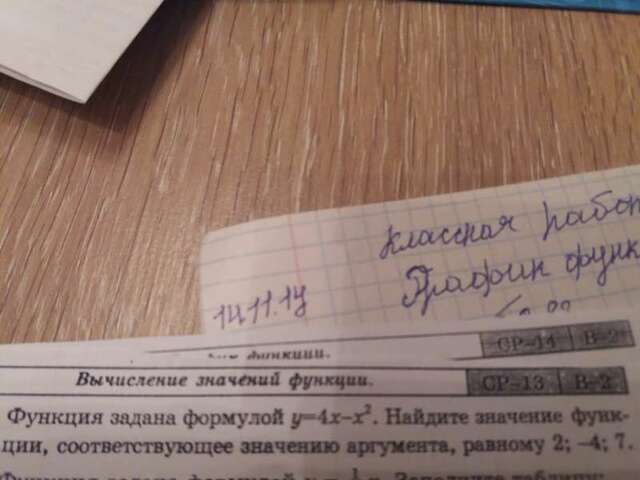 классная работ
График функ
14.11.17
функции. СР-14 В-2
Вычисление значений функции. СР-13 В-2
Функция задана формулой y=4x–x². Найдите значение функ-
ции, соответствующее значению аргумента, равному 2; –4; 7.